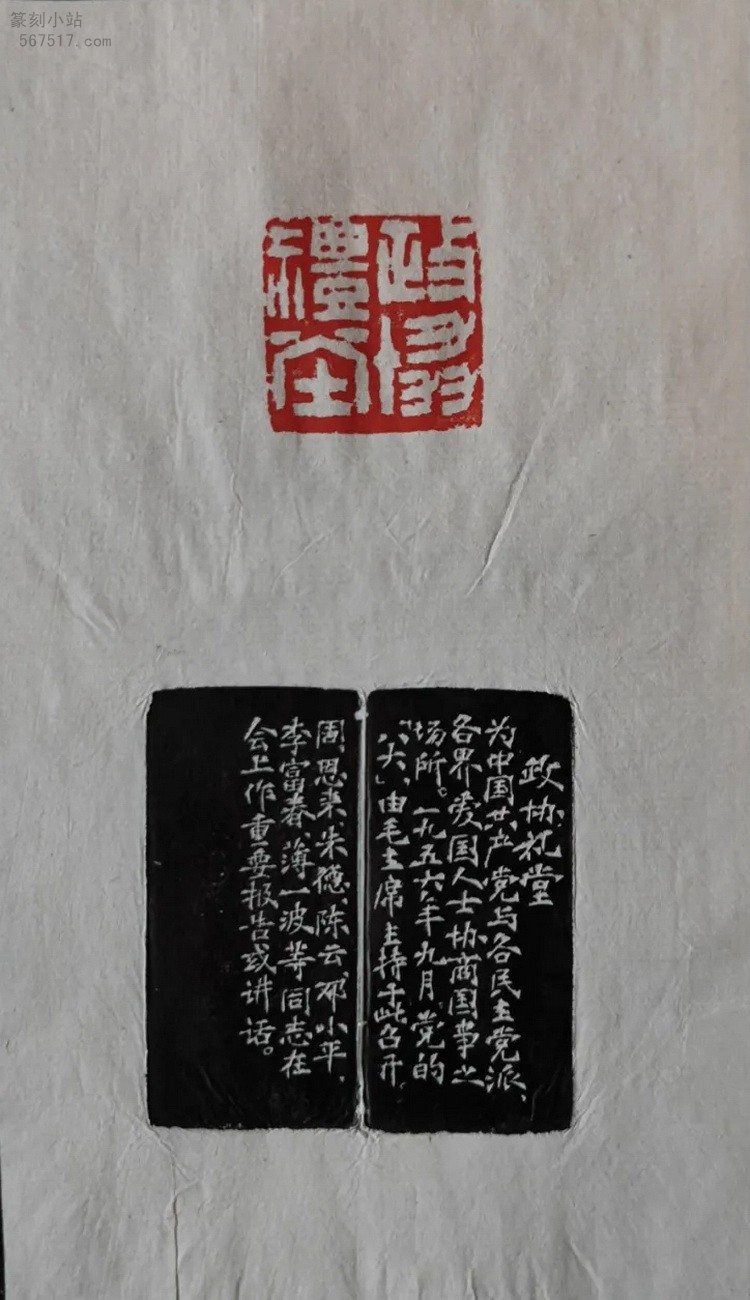 篆刻小站
567517.com
政協
禮堂
政协礼堂
为中国共产党与各民主党派、
各界爱国人士协商国事之
场所。一九五六年九月党的
「八大」由毛主席主持于此召开。
周恩来、朱德、陈云、邓小平、
李富春、薄一波等同志在
会上作重要报告或讲话。